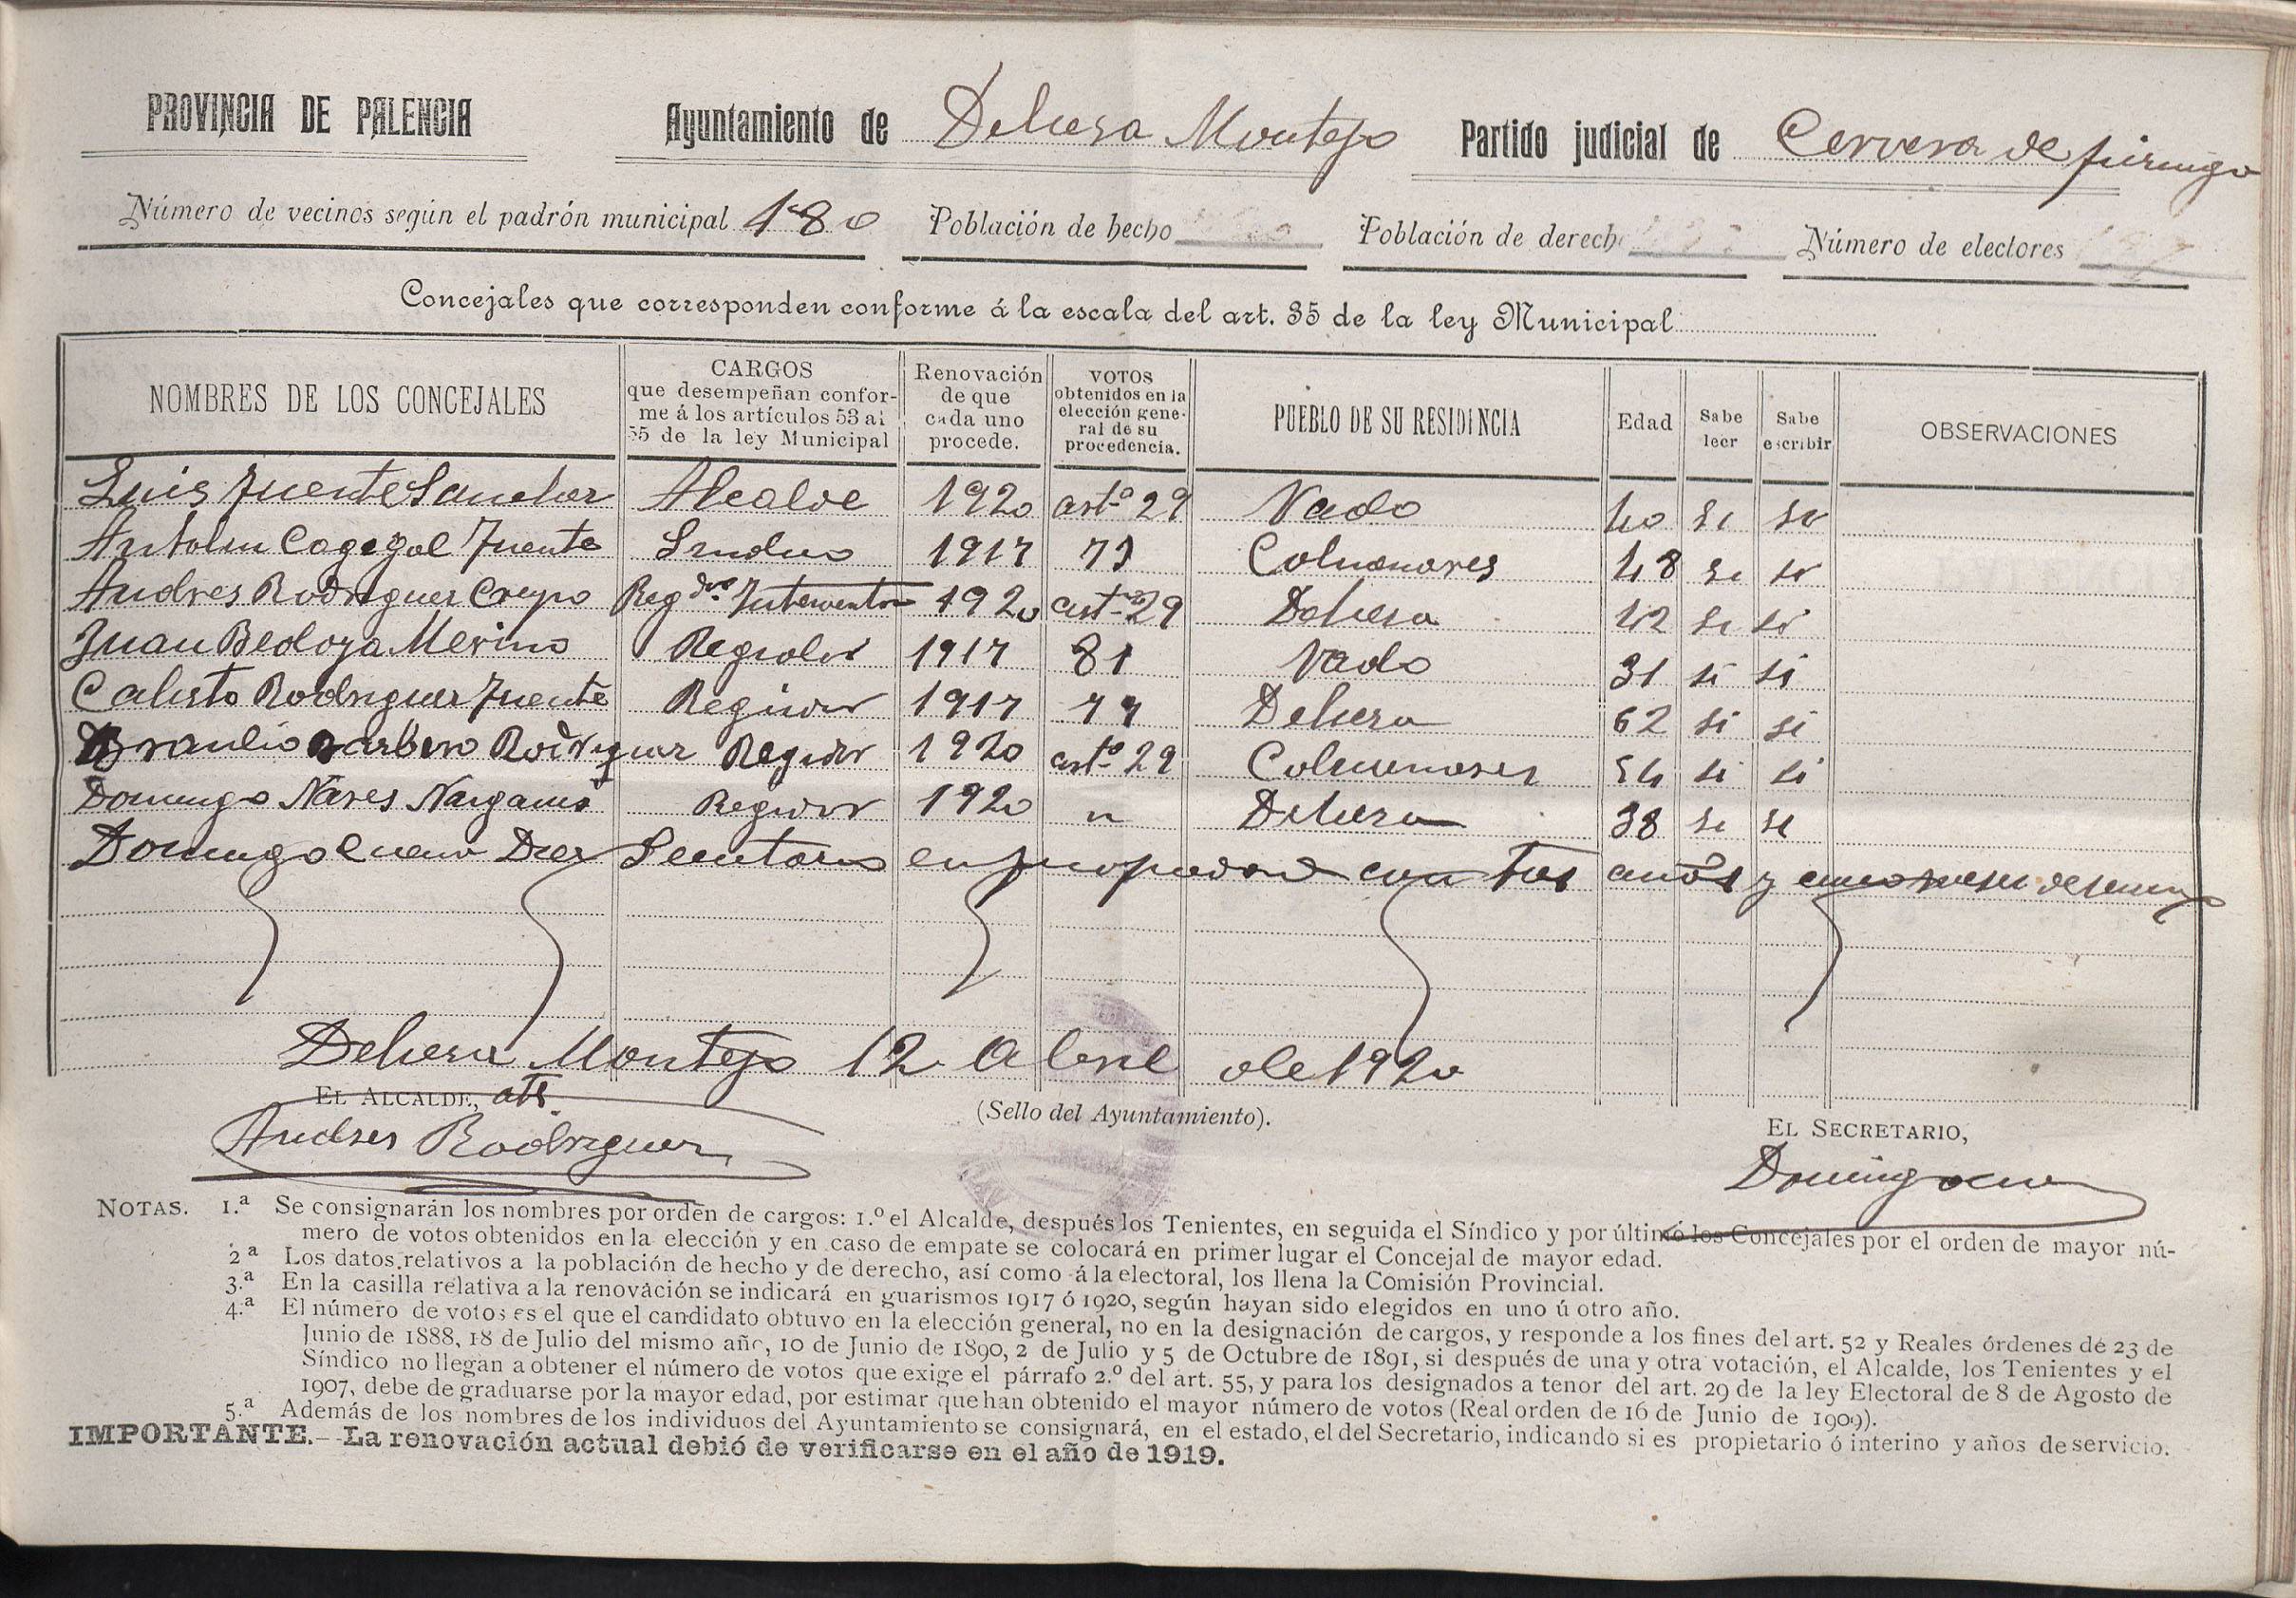 PROVINCIA DE PALENCIA Ayuntamiento de Dehesa Montejo Partido judicial de Cervera de pisuerga
Número de vecinos según el padrón municipal 180 Población de hecho Población de derecho Número de electores
Concejales que corresponden conforme á la escala del art. 35 de la ley Municipal
NOMBRES DE LOS CONCEJALES
CARGOS
que desempeñan confor-
me á los artículos 53 al
55 de la ley Municipal
Renovación
de que
cada uno
procede.
VOTOS
obtenidos en la
elección gene-
ral de su
procedencia.
PUEBLO DE SU RESIDENCIA
Edad
Sabe
leer
Sabe
escribir
OBSERVACIONES
Luis Fuente Sanchez Alcalde 1920 artº 29 Vado 40 si si
Antolin Cagigal Fuente Sindico 1917 Colmenares 48 si si
Andres Rodriguez Crespo Regdor Interventor 1920 artº 29 Dehesa 42 si si
Juan Bedoya Merino Regidor 1917 81 Vado 31 si si
Calisto Rodriguez Fuente Regidor 1917 77 Dehesa 62 si si
Braulio Barbero Rodriguez Regidor 1920 artº 29 Colmenares 54 si si
Domingo Narganes Regidor 1920 " Dehesa 38 si si
Domingo Cuena Diez Secretario en propiedad con tres años y cinco meses de
Dehesa Montejo 12 Abril de 1920
EL ALCALDE,
(Sello del Ayuntamiento).
EL SECRETARIO,
Andres Rodriguez
Domingo
NOTAS. 1.ª Se consignarán los nombres por orden de cargos: 1.º el Alcalde, después los Tenientes, en seguida el Síndico y por último los Concejales por el orden de mayor nú-
mero de votos obtenidos en la elección y en caso de empate se colocará en primer lugar el Concejal de mayor edad.
2ª Los datos relativos a la población de hecho y de derecho, así como á la electoral, los llena la Comisión Provincial.
3.ª En la casilla relativa a la renovación se indicará en guarismos 1917 ó 1920, según hayan sido elegidos en uno ú otro año.
4.ª El número de votos es el que el candidato obtuvo en la elección general, no en la designación de cargos, y responde a los fines del art. 52 y Reales órdenes de 23 de
Junio de 1888, 18 de Julio del mismo año, 10 de Junio de 1890, 2 de Julio y 5 de Octubre de 1891, si después de una y otra votación, el Alcalde, los Tenientes y el
Síndico no llegan a obtener el número de votos que exige el párrafo 2.º del art. 55, y para los designados a tenor del art. 29 de la ley Electoral de 8 de Agosto de
1907, debe de graduarse por la mayor edad, por estimar que han obtenido el mayor número de votos (Real orden de 16 de Junio de 1909).
5.ª Además de los nombres de los individuos del Ayuntamiento se consignará, en el estado, el del Secretario, indicando si es propietario ó interino y años de servicio.
IMPORTANTE.—La renovación actual debió de verificarse en el año de 1919.